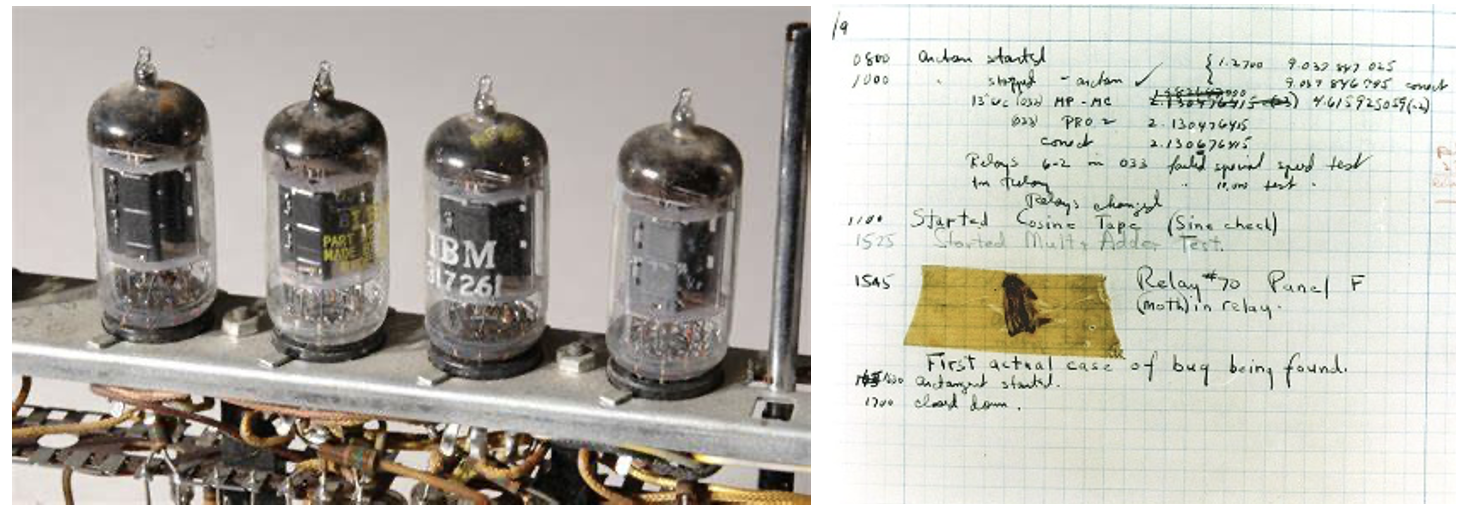 PART
MADE
IBM
317261
19
0800 Antan started
1000 " stopped - antan ✓ { 1.2700 9.037 847 025
9.037 846 795 correct
13" uc (032) MP - MC 4.615925059(-2)
(033) PRO 2 2.130476415
correct 2.130676415
Relays 6-2 in 033 failed special speed test
in Relay " 10.000 test "
Relays changed
1100 Started Cosine Tape (Sine check)
1525 Started Mult + Adder Test.
1545 Relay #70 Panel F
(moth) in relay.
First actual case of bug being found.
1630 antangent started.
1700 closed down.